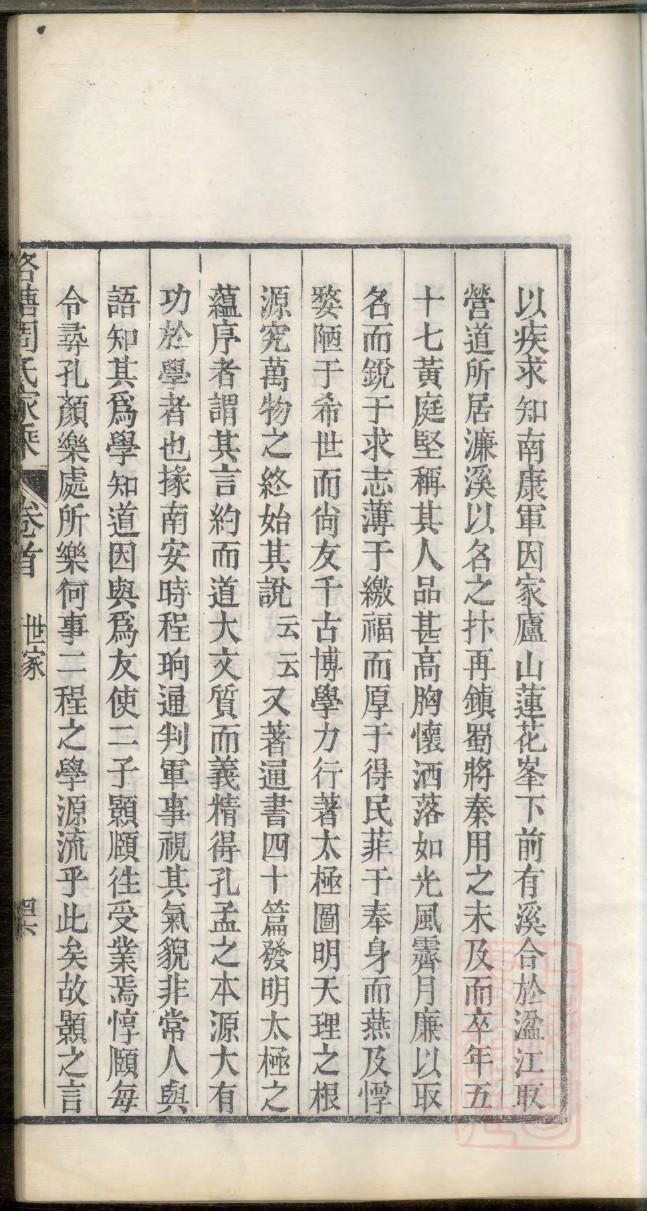 以疾求知南康軍因家廬山蓮花峯下前有溪合於湓江取
營道所居濂溪以名之抃再鎮蜀將奏用之未及而卒年五
十七黃庭堅稱其人品甚高胸懷洒落如光風霽月廉以取
名而銳于求志薄于繳福而厚于得民菲于奉身而燕及惸
嫠陋于希世而尙友千古博學力行著太極圖明天理之根
源究萬物之終始其說云云又著通書四十篇發明太極之
蘊序者謂其言約而道大文質而義精得孔孟之本源大有
功於學者也掾南安時程珦通判軍事視其氣貌非常人與
語知其爲學知道因與爲友使二子顥頤徃受業焉惇頤每
令尋孔顏樂處所樂何事二程之學源流乎此矣故顥之言
周氏家乘 卷首 世家